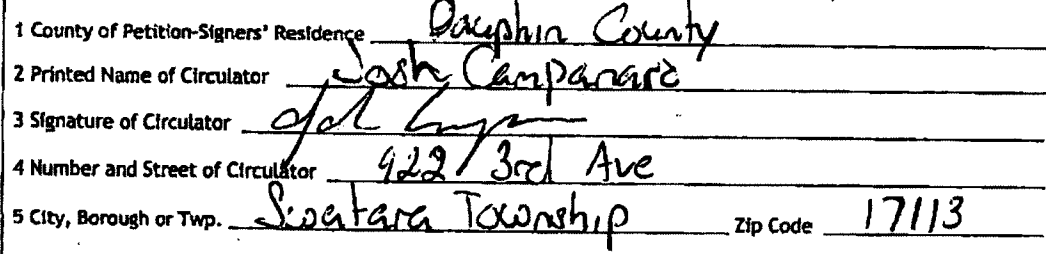 1 County of Petition-Signers' Residence Dauphin County
2 Printed Name of Circulator Josh Campanaro
3 Signature of Circulator
4 Number and Street of Circulator 922 3rd Ave
5 City, Borough or Twp. Swatara Township Zip Code 17113